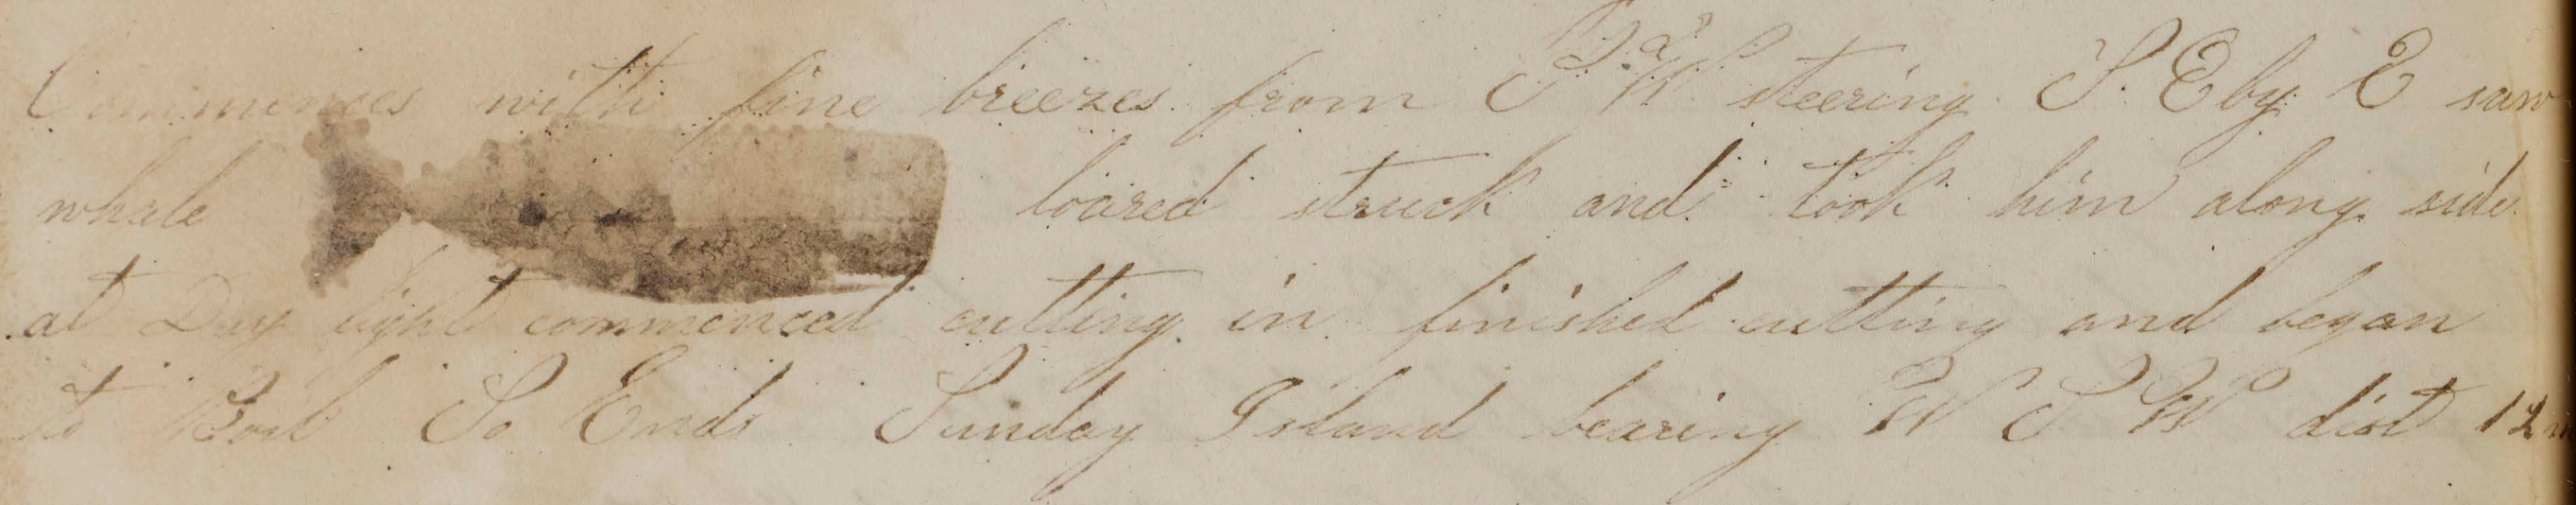 Commences with fine breezes from S W steering S. E by E saw
whale loared struck and took him along side
at Day light commenced cutting in finished cutting and began
to Boil So Ends Sunday Island bearing W S W dist 12 m